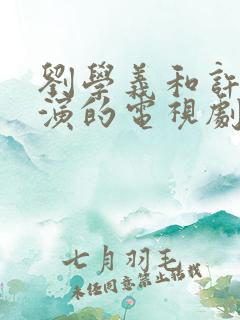 劉學義和許
演的電視劇
七月羽毛
未經同意禁止搭載